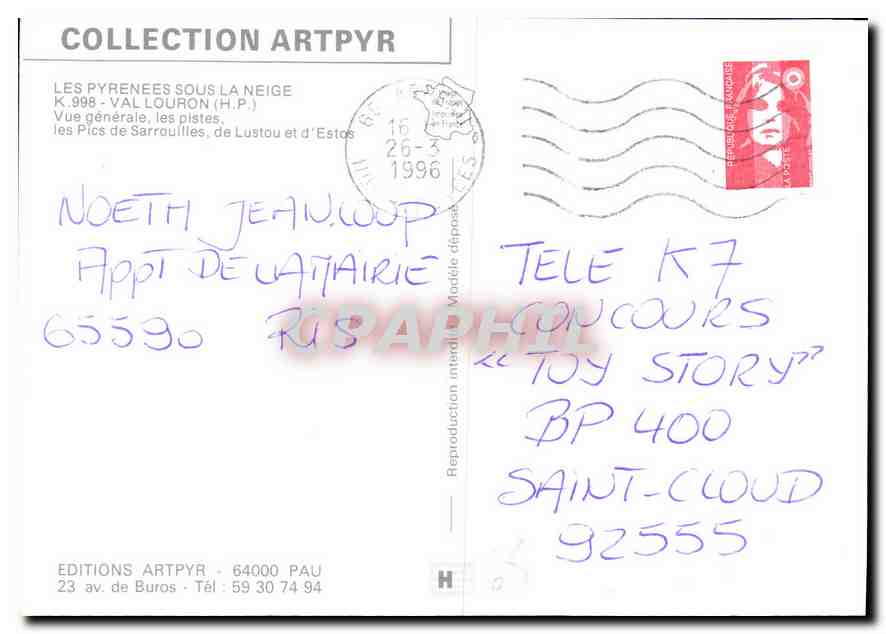 COLLECTION ARTPYR
LES PYRENEES SOUS LA NEIGE
K.998 - VAL LOURON (H.P.)
Vue générale, les pistes,
les Pics de Sarrouilles, de Lustou et d'Estos
16
26-3
1996
REPUBLIQUE FRANÇAISE
LA POSTE
NOETH JEAN.LOUP
APPT DE LA MAIRIE
65590 RIS
Reproduction interdite Modèle déposé
CPAPHIL
TELE K7
CONCOURS
“TOY STORY”
BP 400
SAINT-CLOUD
92555
EDITIONS ARTPYR - 64000 PAU
23 av. de Buros - Tél : 59 30 74 94
H